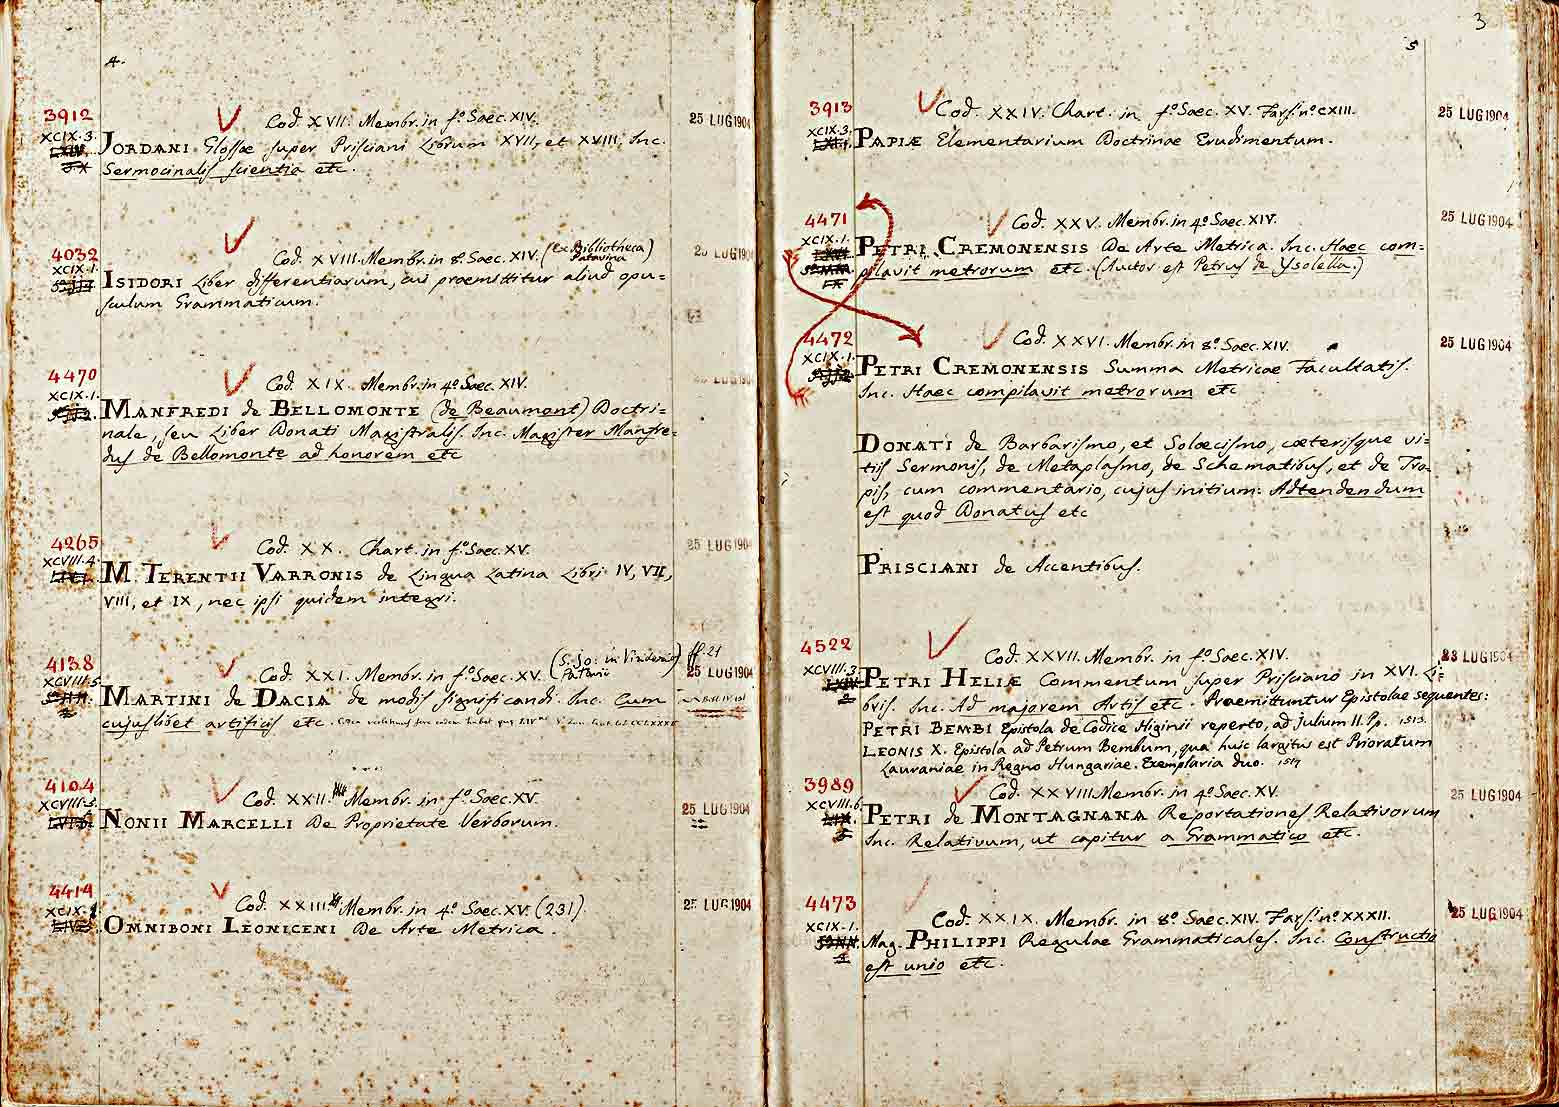 4.
3912
Cod. XVII. Membr. in fº. Saec. XIV.
25 LUG 1904
XCIX.3.
JORDANI Glossae super Prisciani Librum XVII, et XVIII, Inc.
Sermocinalis scientia etc.
4032
Cod. XVIII. Membr. in 8º. Saec. XIV. (ex Bibliotheca Patavina)
25 LUG 1904
XCIX.1.
ISIDORI Liber differentiarum, cui praemittitur aliud opu=
sculum Grammaticum.
4470
Cod. XIX. Membr. in 4º Saec. XIV.
XCIX.1.
MANFREDI de BELLOMONTE (de Beaumont) Doctri=
nale, seu Liber Donati Magistralis. Inc. Magister Manfre=
dus de Bellomonte ad honorem etc
4265
Cod. XX. Chart. in fº. Saec. XV.
25 LUG 1904
XCVIII.4.
M. TERENTII VARRONIS de Lingua Latina Libri IV, VII,
VIII, et IX, nec ipsi quidem integri.
4138
Cod. XXI. Membr. in fº. Saec. XV. (S. Jo: in Viridario Patavii) ff. 21
25 LUG 1904
XCVIII.5.
MARTINI de DACIA de modis significandi. Inc. Cum
cujuslibet artificis etc.
4104
Cod. XXII. Membr. in fº. Saec. XV.
XCVIII.3.
25 LUG 1904
NONII MARCELLI De Proprietate Verborum.
4414
Cod. XXIII. Membr. in 4º Saec. XV. (231).
25 LUG 1904
XCIX.
OMNIBONI LEONICENI De Arte Metrica.
3
5
3913
Cod. XXIV. Chart. in fº. Saec. XV. Fars. nº. CXIII.
25 LUG 1904
XCIX.3.
PAPIÆ Elementarium Doctrinae Erudimentum.
4471
Cod. XXV. Membr. in 4º Saec. XIV.
25 LUG 1904
XCIX.1.
PETRI CREMONENSIS De Arte Metrica. Inc. Haec com=
pilavit metrorum etc. (Auctor est Petrus de Ysolella.)
4472
Cod. XXVI. Membr. in 8º. Saec. XIV.
25 LUG 1904
XCIX.1.
PETRI CREMONENSIS Summa Metricae Facultatis.
Inc. Haec compilavit metrorum etc
DONATI de Barbarismo, et Solœcismo, cæterisque vi=
tiis Sermonis, de Metaplasmo, de Schematibus, et de Tro=
pis, cum commentario, cujus initium: Adtendendum
est quod Donatus etc
PRISCIANI de Accentibus.
4522
Cod. XXVII. Membr. in fº. Saec. XIV.
23 LUG 1904
XCVIII.3.
PETRI HELIÆ Commentum super Prisciano in XVI. Li=
bris. Inc. Ad majorem Artis etc. Praemittuntur Epistolae sequentes:
PETRI BEMBI Epistola de Codice Higinii reperto, ad Julium II. Pp. 1513.
LEONIS X. Epistola ad Petrum Bembum, qua huic largitus est Prioratum
Lauraniae in Regno Hungariae. Exemplaria duo. 1517
3989
Cod. XXVIII Membr. in 4º Saec. XV.
25 LUG 1904
XCVIII.6.
PETRI de MONTAGNANA Reportationes Relativorum
Inc. Relativum, ut capitur a Grammatico etc.
4473
Cod. XXIX. Membr. in 8º Saec. XIV. Fars. nº XXXII.
25 LUG 1904
XCIX.1.
Mag. PHILIPPI Regulae Grammaticales. Inc. Constructio
est unio etc.